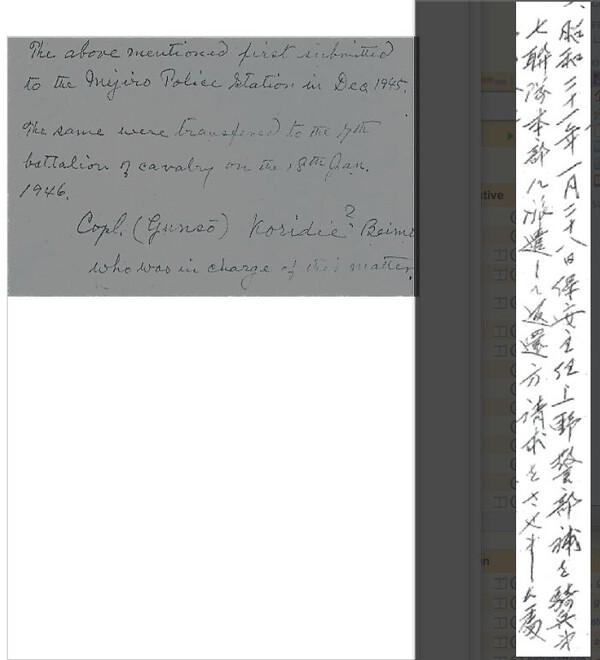 The above mentioned first submitted
to the Mejiro Police Station in Dec. 1945.
The same were transfered to the 7th
battalion of cavalry on the 28th Jan.
1946.
Copl. (Gunsō) Koridie? Beime
who was in charge of this matter
昭和二十一年一月二十八日保安主任上野警部補を騎兵第
七聯隊本部に派遣して返還方請求をさせました處